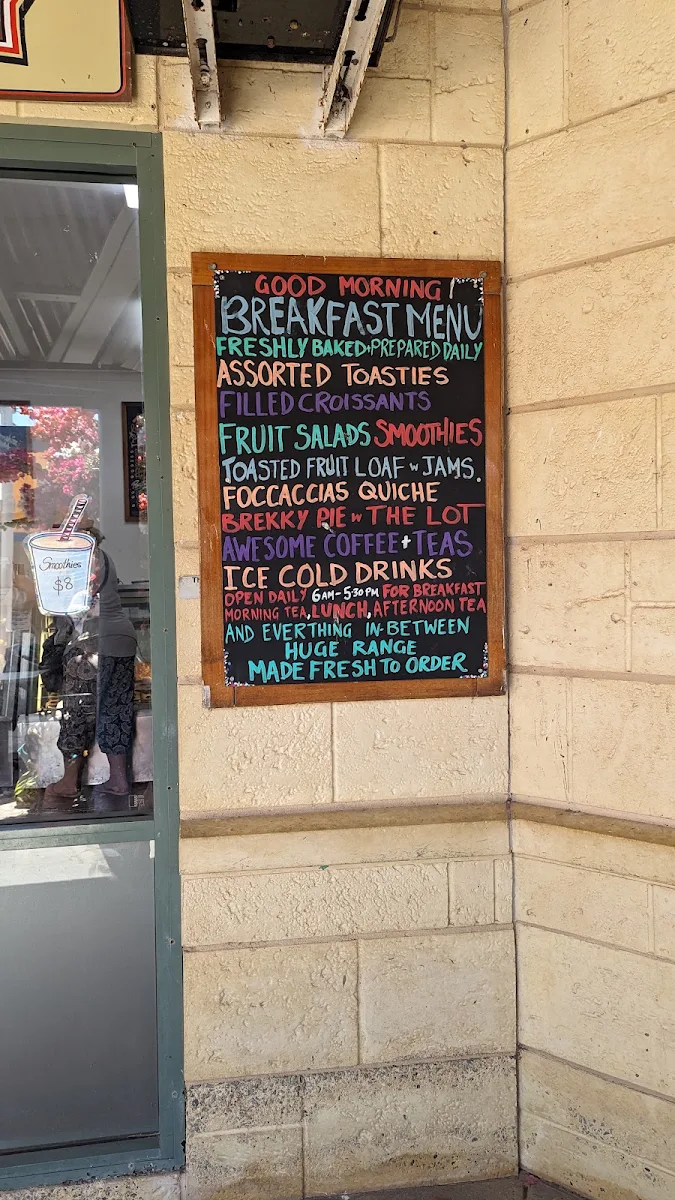 GOOD MORNING
BREAKFAST MENU
FRESHLY BAKED+PREPARED DAILY
ASSORTED TOASTIES
FILLED CROISSANTS
FRUIT SALADS SMOOTHIES
TOASTED FRUIT LOAF w JAMS.
FOCCACCIAS QUICHE
BREKKY PIE w THE LOT
AWESOME COFFEE + TEAS
ICE COLD DRINKS
OPEN DAILY 6AM-5:30PM FOR BREAKFAST
MORNING TEA, LUNCH, AFTERNOON TEA
AND EVERTHING IN-BETWEEN
HUGE RANGE
MADE FRESH TO ORDER
Smoothies
$8